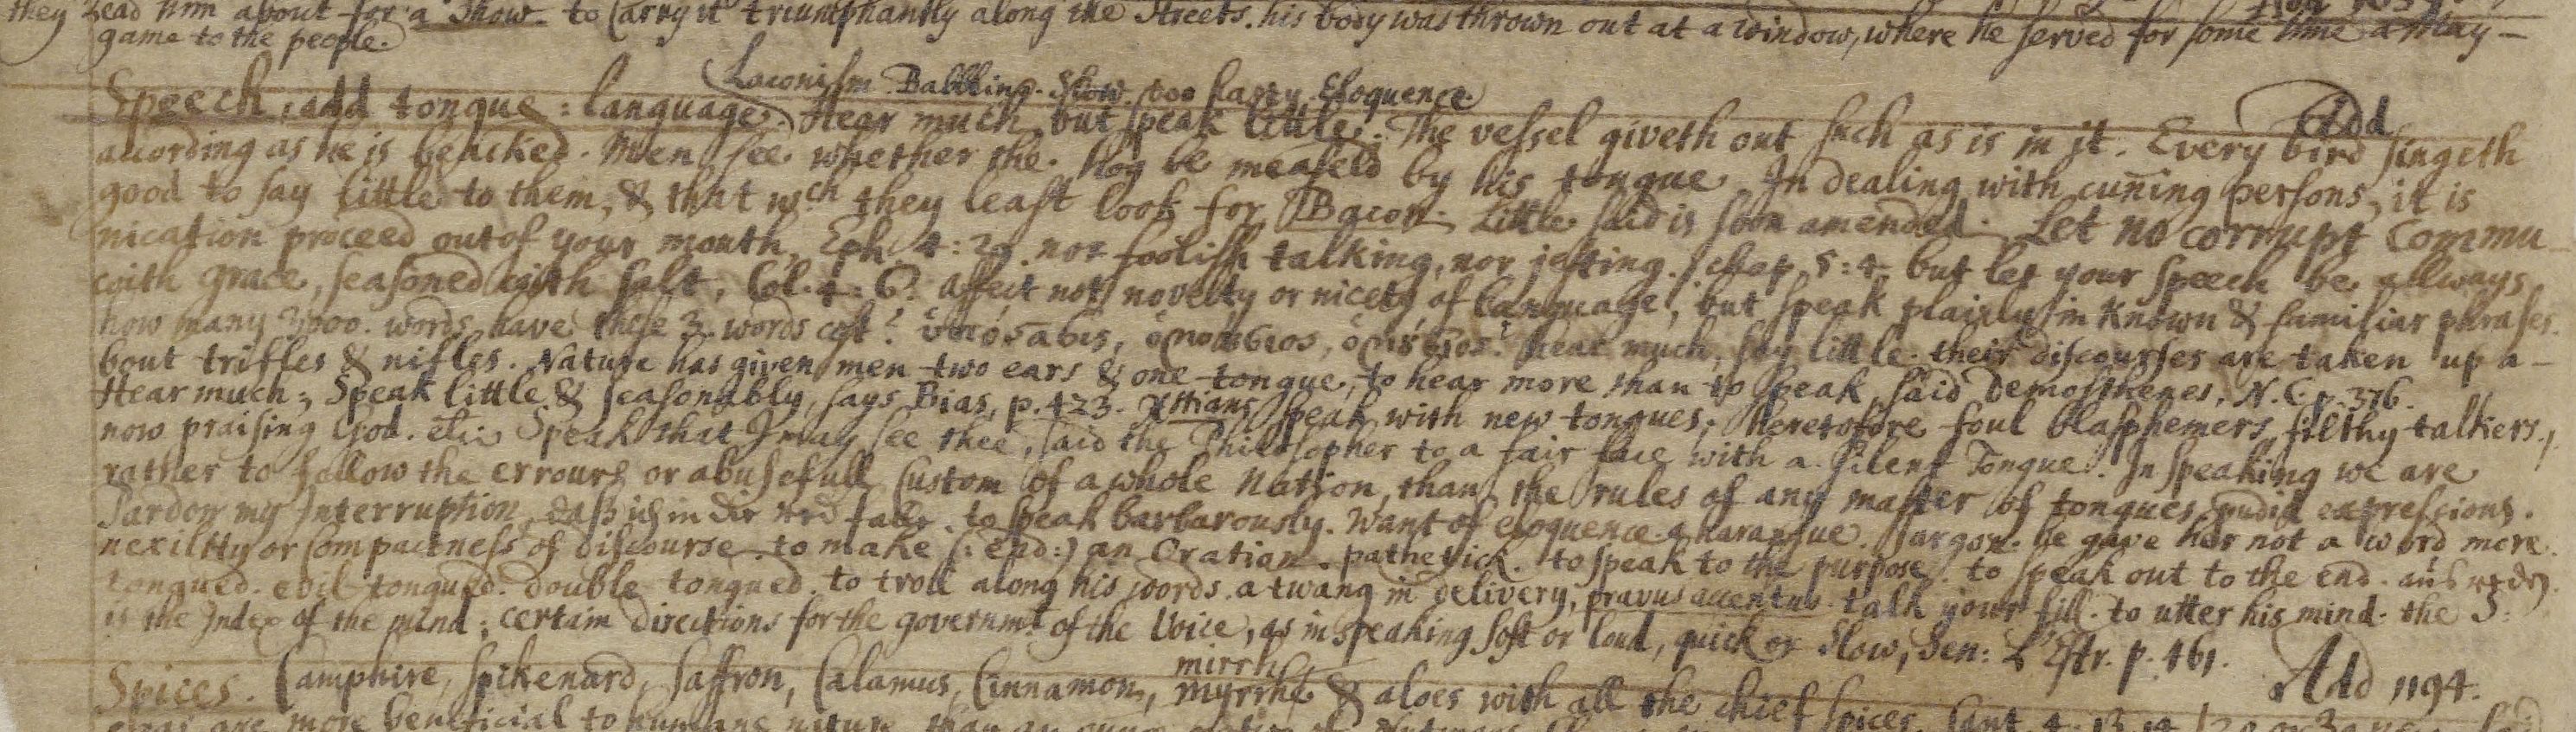 they lead him about for a Show to Carry it triumphantly along the Streets. his body was thrown out at a window, where he served for some time a May-
game to the people.
Laconism. Babbling. Slow. too hasty. Eloquence.
Speech, add tongue: language. Hear much, but speak little. The vessel giveth out such as is in it. Every bird singeth
Add
according as he is beacked. Men see whether the Hog be measeld by his tongue. In dealing with cuning persons, it is
good to say little to them, & that wch they least look for Bacon. Little said is soon amended. Let no corrupt Commu
nication proceed out of your mouth, Eph. 4:29. nor foolish talking, nor jesting. chap. 5:4 but let your speech be allways
with grace, seasoned with salt, Col. 4:6. Affect not novelty or nicety of language, but speak plainly in known & familiar phrases.
how many 3000. words have these 3. words cost? hear much, say little. their discourses are taken up a-
bout trifles & nifles. Nature has given men two ears & one tongue, to hear more than to speak, said Demosthenes, N.C. p. 376.
Hear much; Speak little & seasonably, says Bias, p. 423. Xttians speak with new tongues; heretofore foul blasphemers, filthy talkers,
now praising God. etc. Speak that I may see thee, said the Philosopher to a fair face with a silent Tongue. In speaking we are
rather to follow the errours or abusefull Custom of a whole Nation, than the rules of any master of tongues. expressions.
Pardon my Interruption, daß ich in die red falle. to speak barbarously. Want of eloquence. a harangue. Jargon. he gave her not a word more.
nexility or compactness of discourse. to make (: end:) an Oration. pathetick. to speak to the purpose. to speak out to the end. auß reden.
tongued. evil tongued. double tongued. to troll along his words. a twang in delivery, pravus accentus. talk your fill. to utter his mind. the S:
is the Index of the mind; certain directions for the governmt. of the Voice, as in speaking soft or loud, quick or Slow, Sen: L'Estr. p. 461.
Add 1194.
mirrh
Spices. Camphire, Spikenard, Saffron, Calamus, Cinnamon, myrrhe & aloes with all the chief spices, Cant. 4. 13. 14.
are more beneficial to humane nature than